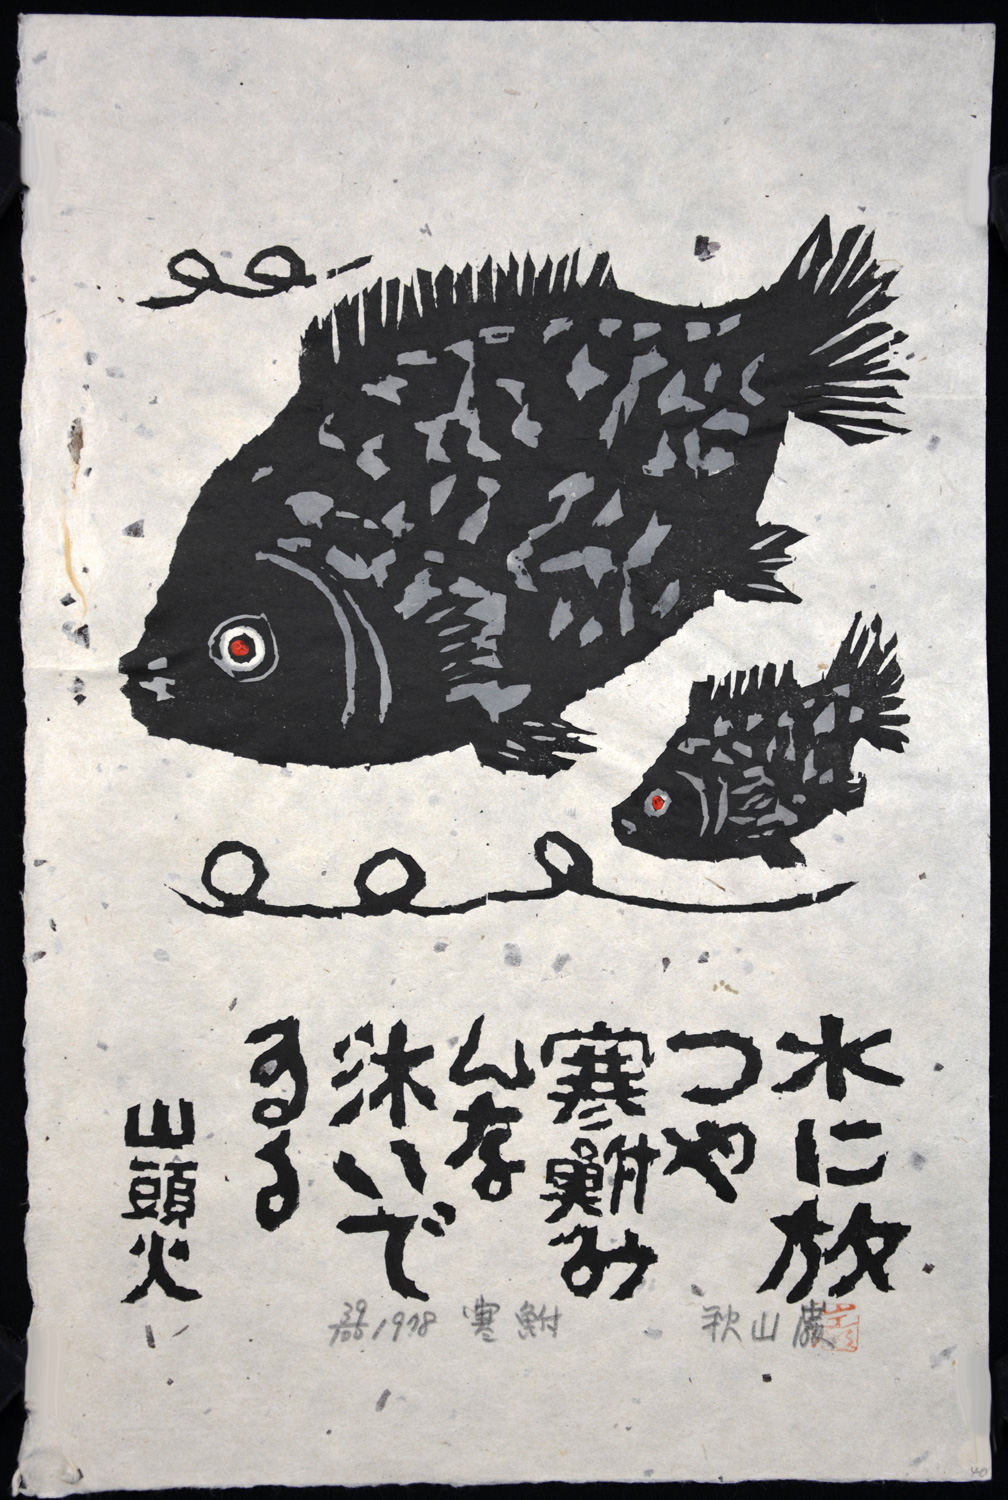 水に放
つや
寒鮒み
んな
泳いで
ゐる
山頭火
39/100 1978 寒鮒 秋山巖